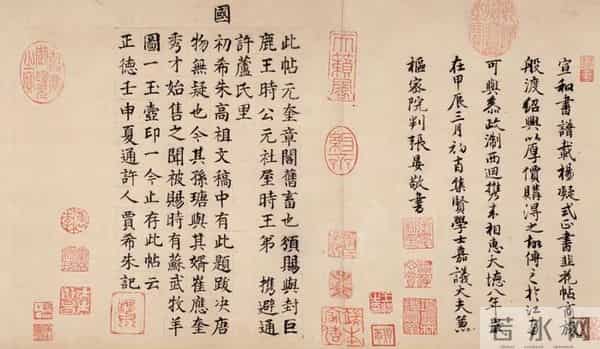 宣和書譜載楊凝式正書韭花帖商旅
般渡紹興以厚價購得之傳之於江左
可與叅政浙西迴携来相惠大德八年歲
在甲辰三月初吉集賢學士嘉議大夫兼
樞密院判張晏敬書
此帖元奎章閣舊畜也頒賜與封巨
鹿王時公元社屋時王弟 携避通
許蘆氏里
國初希朱高祖文稿中有此題跋决唐
物無疑也今其孫瑭與其婿崔應奎
秀才始售之聞被賜時有蘇武牧羊
圖一玉壺印一今止存此帖云
正德壬申夏通許人賈希朱記
若水网